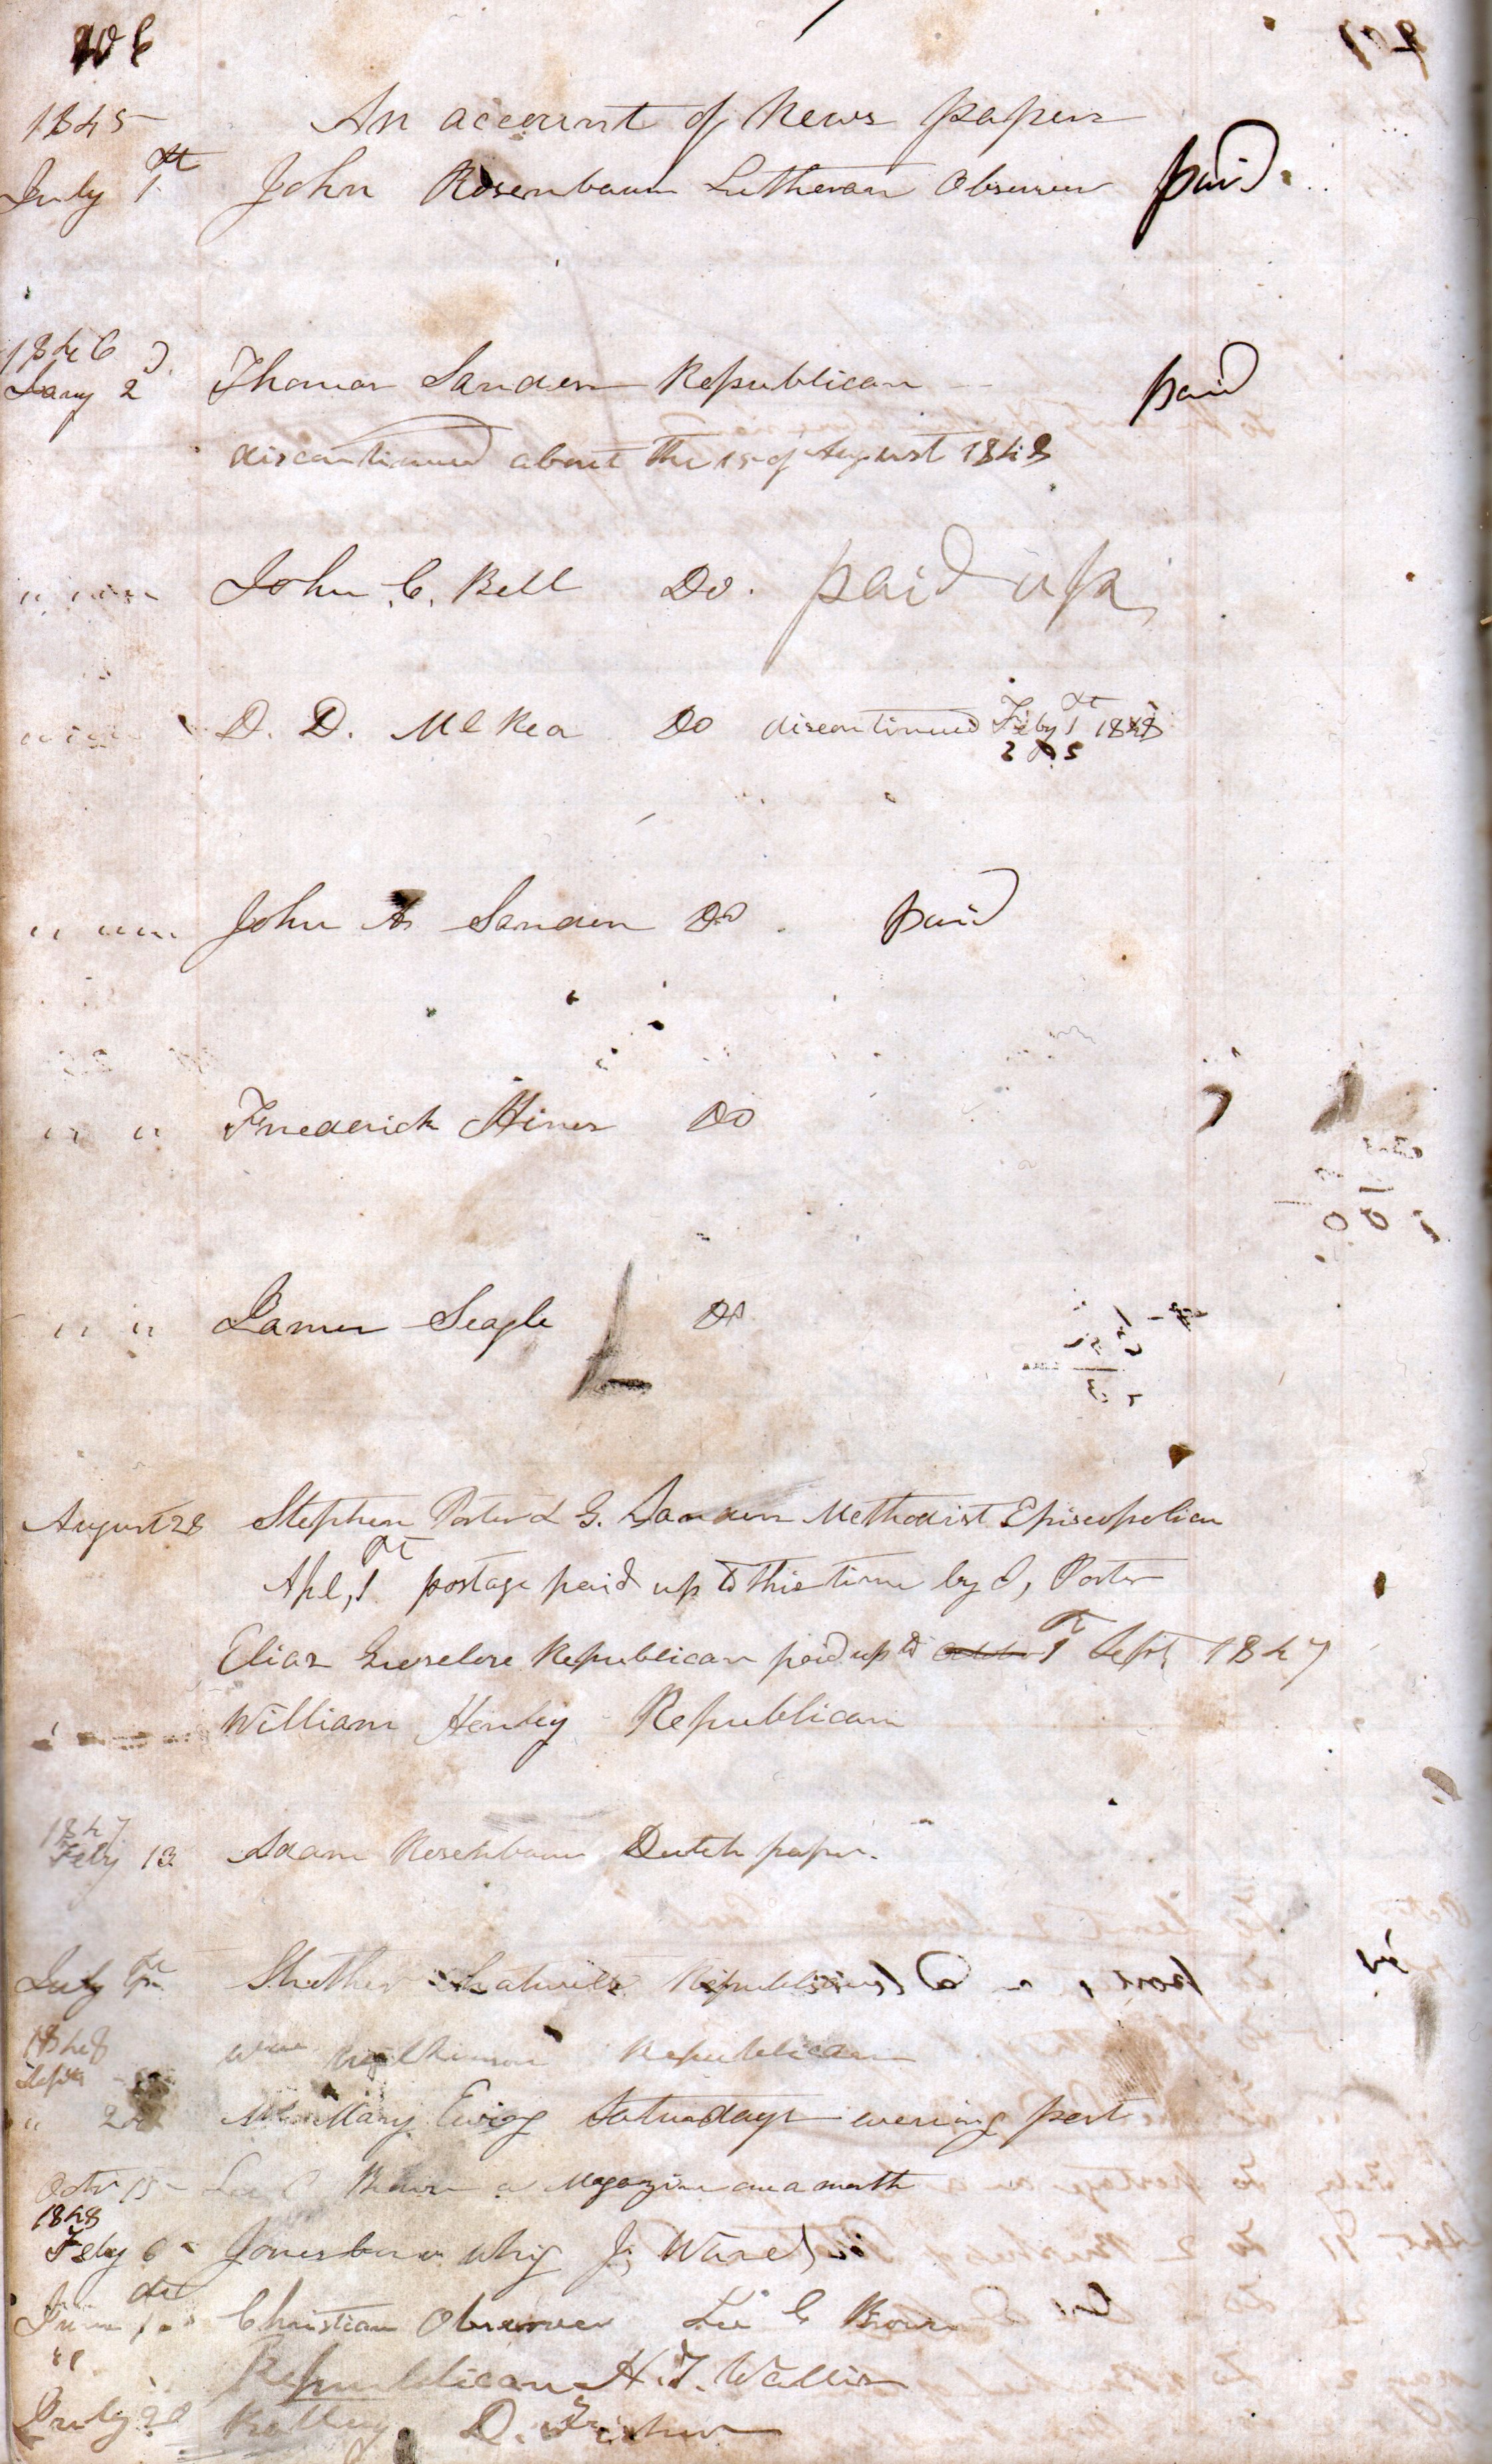 206
1845 An account of News papers
July 1st John Rosenbaum Lutheran Observer paid
1846
Jany 2 Thomas Sanders Republican paid
discontinued about the 15 of August 1848
" " " John C. Bell Do. paid up
" " " D. D. McRea Do discontinued Feby 1st 1848
" " " John A Sanders Do. paid
" " Frederick Hiner Do
" " James Seagle Do
August 28 Stephen Porter & G. Sanders Methodist Episcopalian
Apl, 1st postage paid up to this time by S, Porter
Elias republican paid up to 1st Sept, 1847
William Henley Republican
1847
Feby 13 Adam Rosenbaum Dutch paper.
July Republican
1848
Sept Wm Wilkinson Republican
" Mary Ewing Saturdays evening post
Octbr 15 a Magazine once a month
1848
Feby 6 Jonesboro whig J, Ward
June 1st Christian Observer Lee C Brown
" Republican H. T. Wallis
July D.